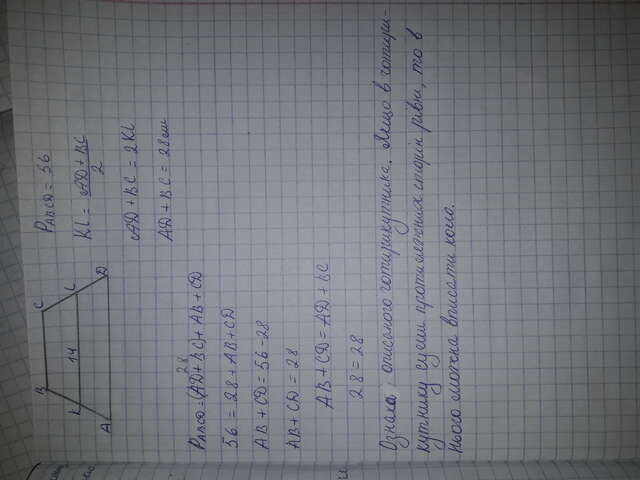 B
C
K
14
L
A
D
P_ABCD = 56
KL = (AD + BC) / 2
AD + BC = 2KL
AD + BC = 28 см
28
P_ABCD = (AD + BC) + AB + CD
56 = 28 + AB + CD
AB + CD = 56 - 28
AB + CD = 28
AB + CD = AD + BC
28 = 28
Ознака: описаного чотирикутника. Якщо в чотири-
кутнику суми протилежних сторін рівні, то в
нього можна вписати коло.